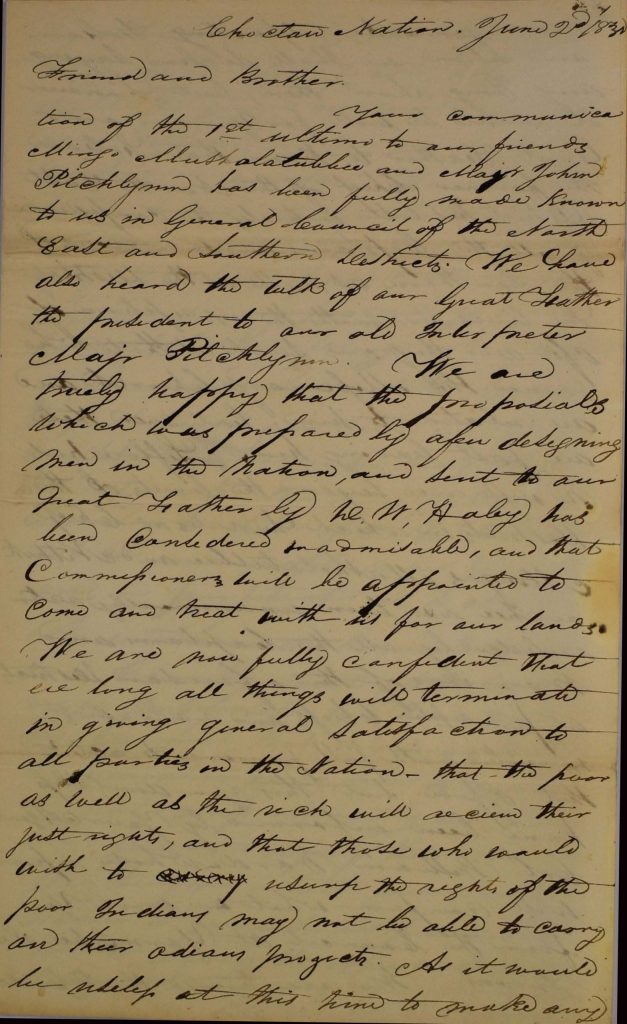 Choctaw Nation. June 2d 1830
Friend and Brother.
Your communica
tion of the 1st ultimo to our friends
Mingo Mushalatubbee and Majr John
Pitchlynn has been fully made Known
to us in General Council of the North
East and Southern Districts. We have
also heard the talk of our Great Father
the president to our old Interpreter
Majr Pitchlynn. We are
truely happy that the proposials
which was prepared by afew designing
men in the Nation, and sent to our
Great Father by D. W. Haley has
been Considered inadmisable, and that
Commissioners will be appointed to
Come and treat with us for our lands.
We are now fully confident that
ere long all things will terminate
in giving general Satisfaction to
all parties in the Nation - that the poor
as well as the rich will recieve their
just rights, and that those who would
wish to usurp the rights of the
poor Indians may not be able to carry
on their odious progects. As it would
be useless at this time to make any